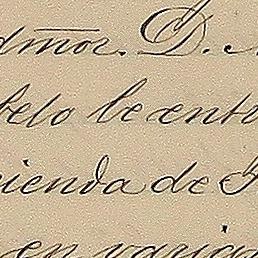 dmor. D.
telo le entr
ienda de
en varias